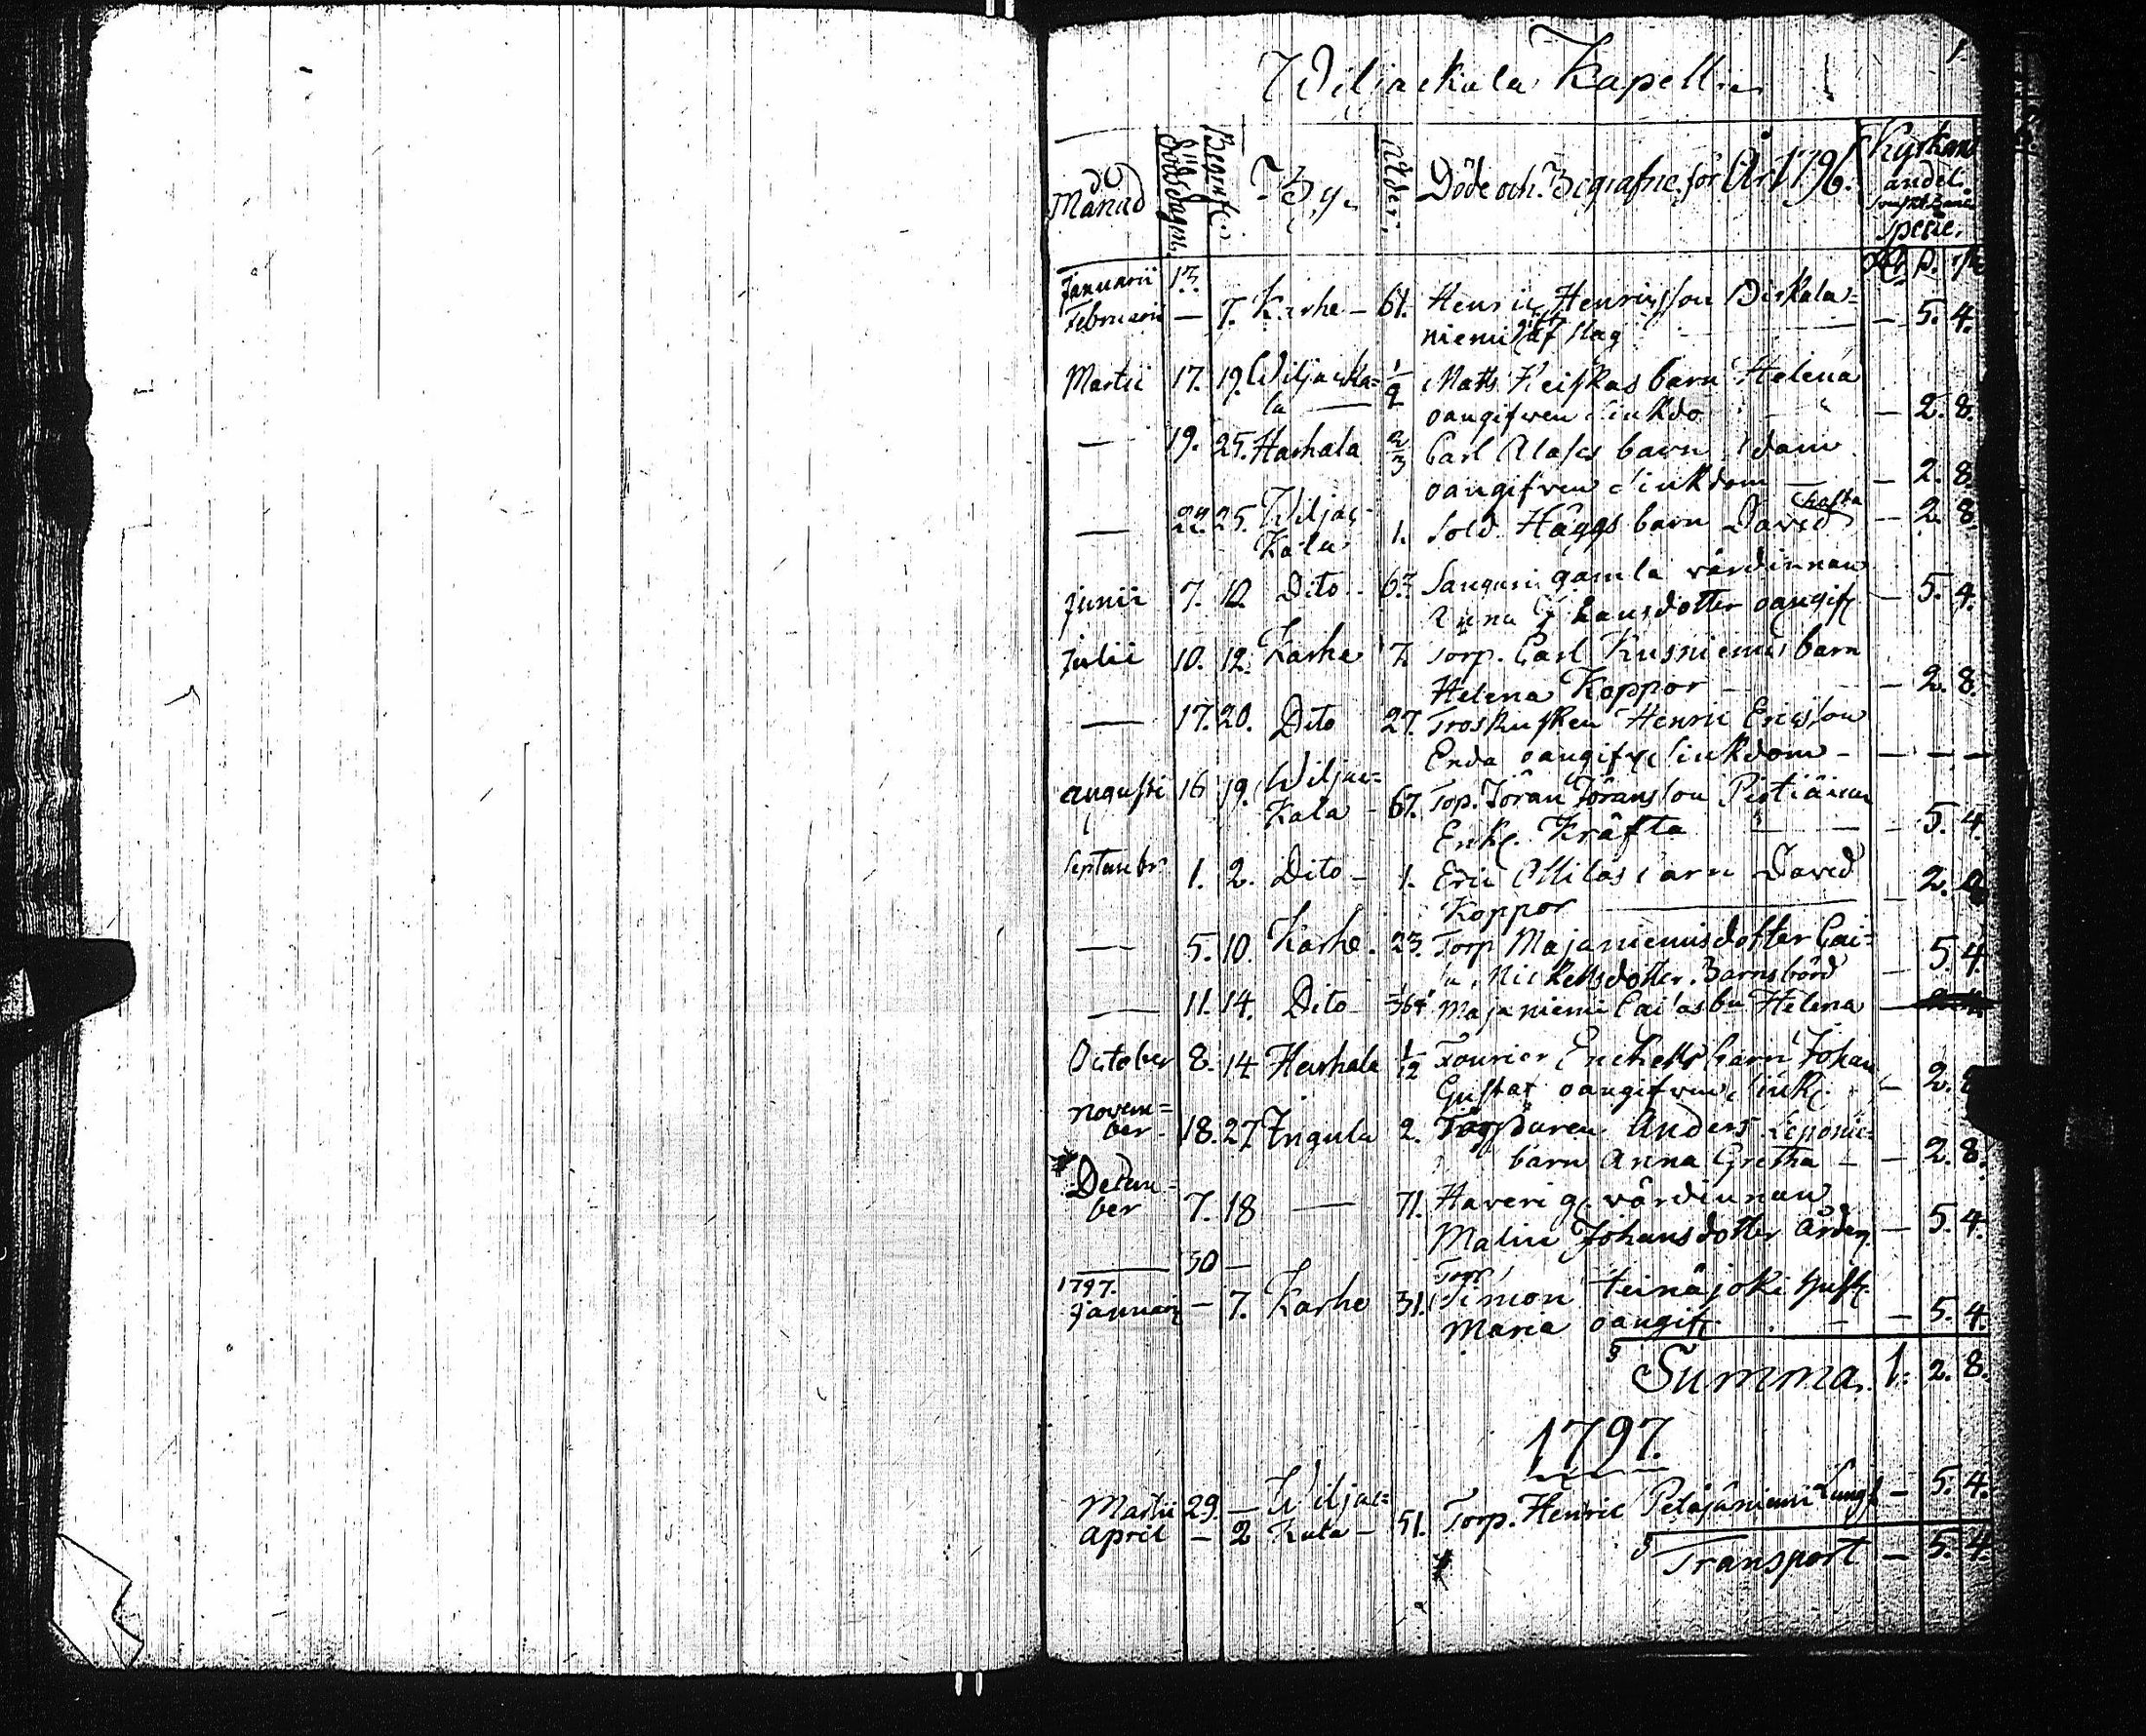 1.
Wiljackala Kapell
Månad dödsdagen Begrafn. By. Ålder. Döde och Begrafne för År 1796. Kyrkans andel. specie.
Januarii 13.
Februarii — 7. Karhe — 61. Henric Henricsson Diskala=
niemi slag — 5. 4.
Martii 17. 19. Wiljacka= 1/2 Matts Keiskas barn Helena
la — oangifwen siukdo — 2. 8.
— 19. 25. Harhala 2/3 Carl Alases barn Adam
oangifwen siukdom — 2. 8.
— 22. 25. Wiljac- 1. Sold. Häggs barn David hosta — 2. 8.
kala
Junii 7. 12. Dito — Sanguni gamla värdinnan
Anna Johansdotter oangif. — 5. 4.
Julii 10. 12. Karhe 7. Torp. Carl Kusniemis barn
Helena Koppor — 2. 8.
— 17. 20. Dito 27. Trosskusken Henric Ericsson
Enda oangifve siukdom — — —
Augusti 16 19. Wiljac= 67. Torp. Jöran Jöransson
Kala — Enk. Kräfta — 5. 4.
Septembr 1. 2. Dito — 1. Eric Ollilas barn David
Koppor — 2. 8.
— 5. 10. Karhe. 23. Torp Majaniemis dotter Cai=
sa Mickelsdotter. Barnsbörd — 5. 4.
— 11. 14. Dito — Majaniemi Caisas bn Helena —
October 8. 14 Harhala 1/12 Fourier Enehells barn Johan
Gustaf oangifwen siuk. — 2. 8
Novem=
ber 18. 27 Ingula 2. Anders
barn Anna Gretha — 2. 8.
Decem=
ber 7. 18 — 71. Haveri g. värdinnan
Malin Johansdotter Ålderd. — 5. 4.
— 30 — Torp
1797.
Januarii — 7. Karhe 31. Simon teinäjoki hust.
Maria oangif. — 5. 4.
Summa. 1. 2. 8.
1797.
Martii 29. — Wiljac=
April — 2 Kala — 51. Torp. Henric Petäjäniemi Lungs — 5. 4.
Transport — 5. 4